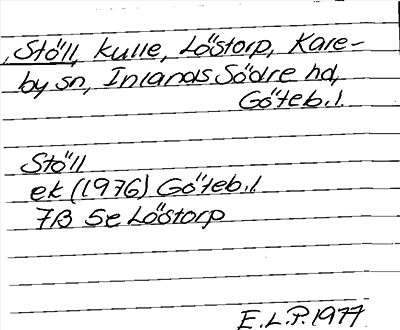 Stöll, kulle, Löstorp, Kare-
by sn, Inlands Södre hd,
Göteb.l.
Stöll
ek (1976) Göteb.l
7B 5e Löstorp
E.L.P. 1977